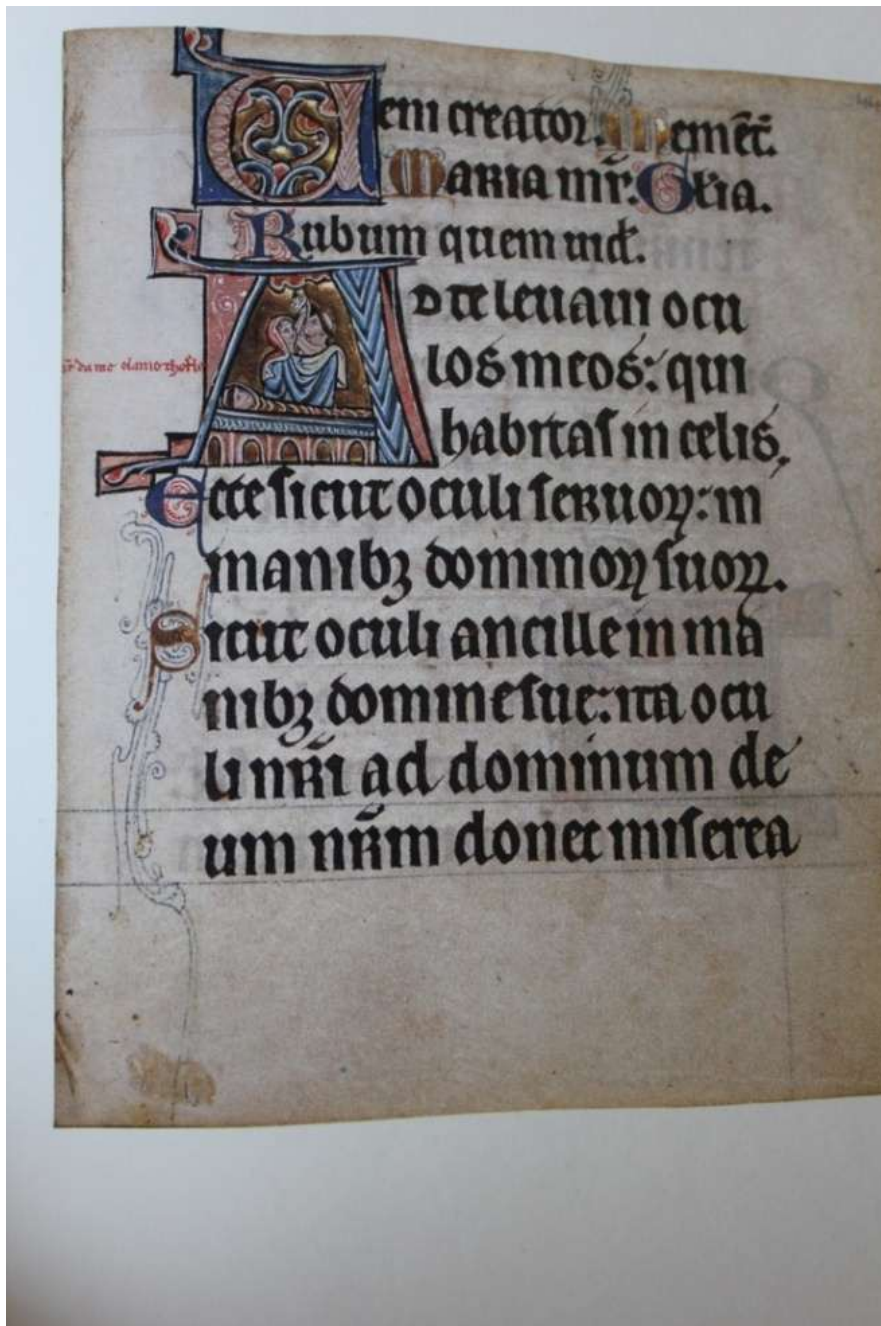 Veni creator. Memẽt.
Maria mr̃. Gl̃ia.
Rubum quem uid̃.
Ad te leuaui ocu
los meos: qui
habitas in celis.
Ecce sicut oculi seruoꝝ: in
manibꝫ dominoꝝ suoꝝ.
Sicut oculi ancille in ma
nibꝫ domine sue: ita ocu
li nr̃i ad dominum de
um nr̃m donec miserea